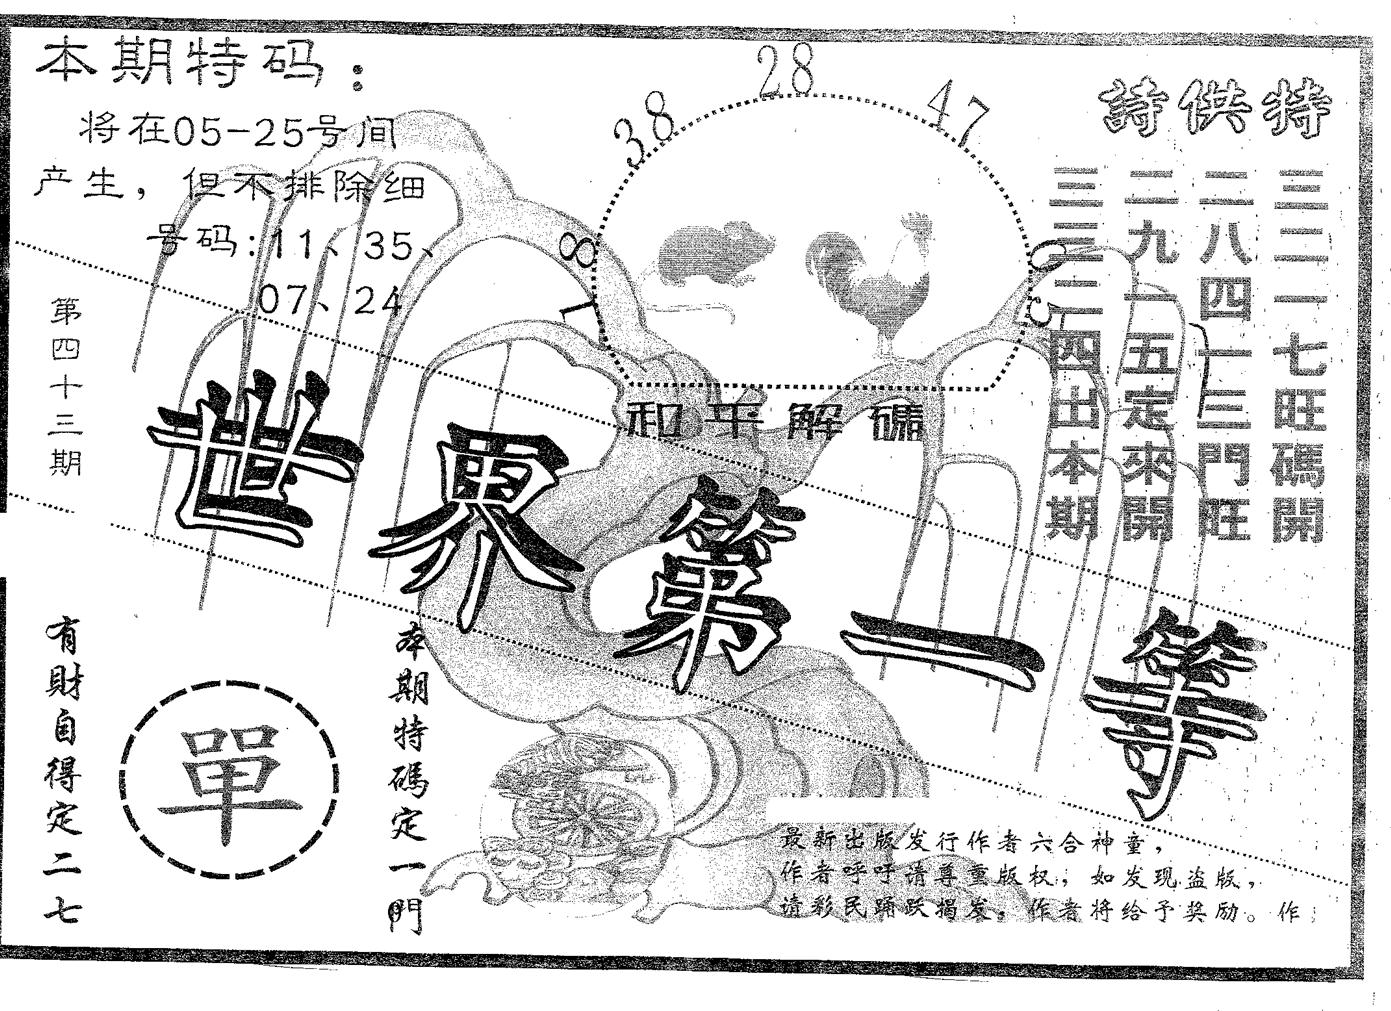 本期特码：
将在05-25号间
产生，但不排除细
号码:11、35、
07、24
第四十三期
38
28
47
18
和平解碼
特供詩
三三一七旺碼開
二八四一三門旺
二九一五定來開
三三二四出本期
世界第一等
有財自得定二七
單
本期特碼定一門
最新出版发行作者六合神童，
作者呼吁请尊重版权，如发现盗版，
请彩民踊跃揭发，作者将给予奖励。作